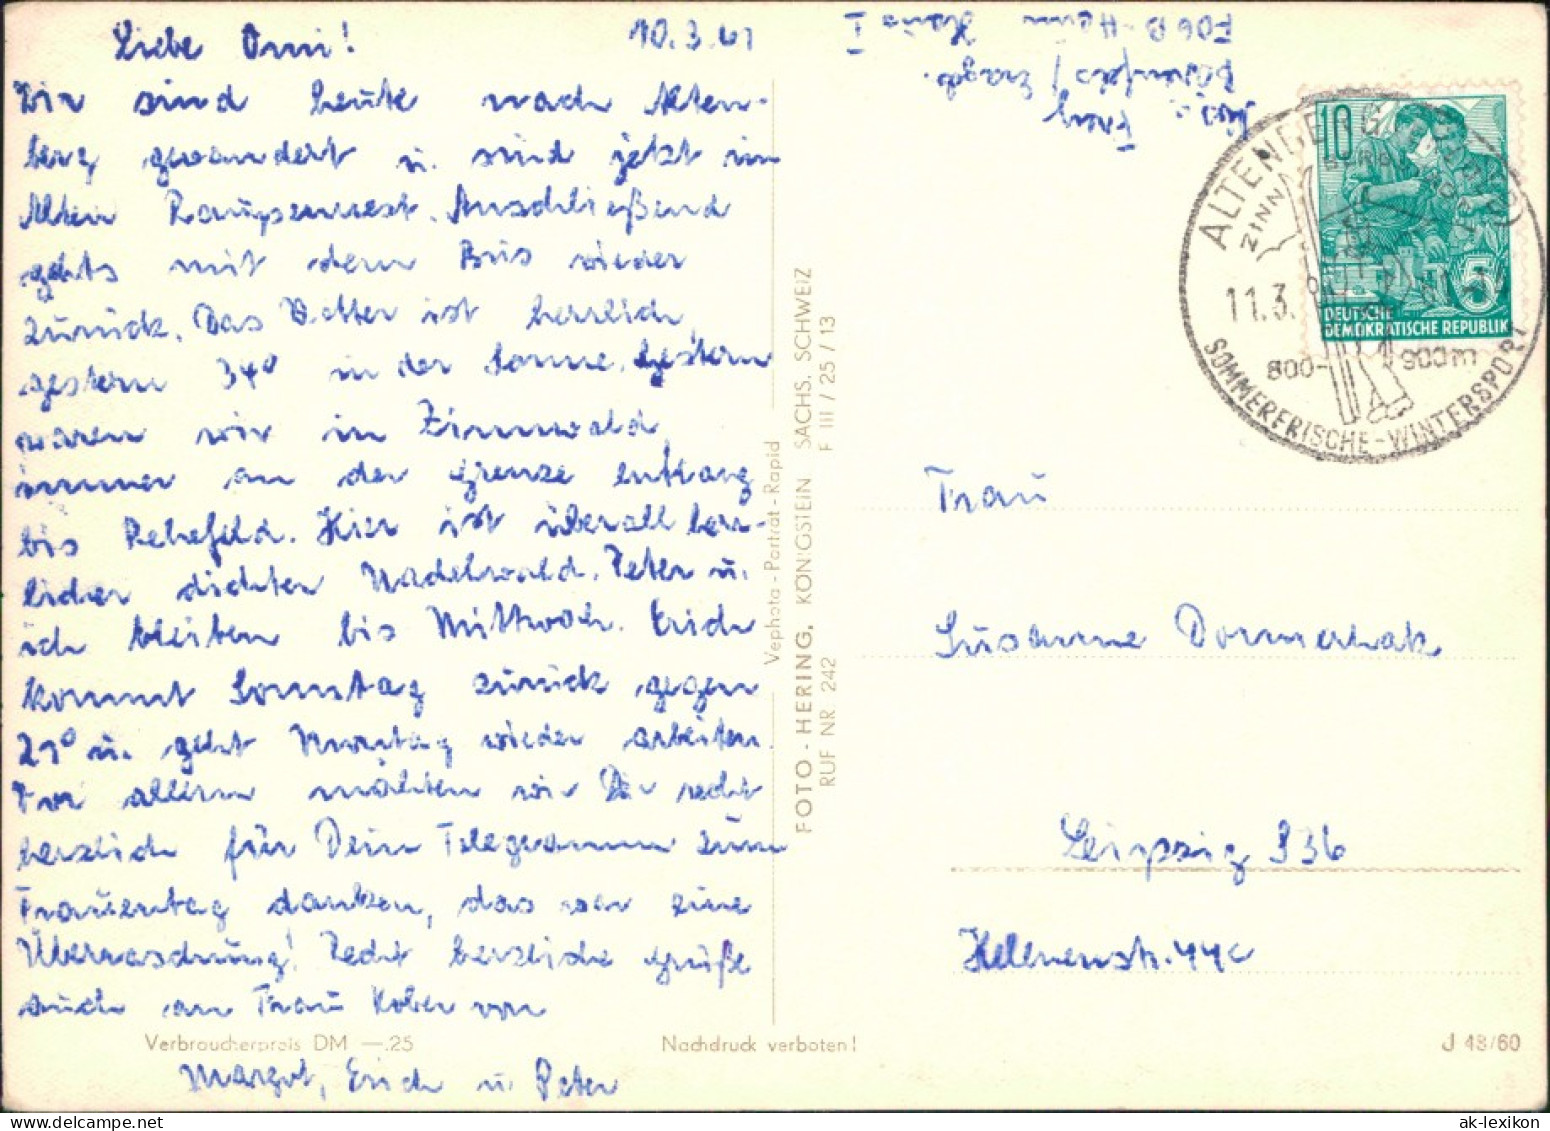 Liebe Omi! 10.3.61
Wir sind heute nach Alten-
berg gewandert u. sind jetzt im
Alten Raupennest. Anschließend
gehts mit dem Bus wieder
zurück. Das Wetter ist herrlich,
gestern 34° in der Sonne. Gestern
waren wir in Zinnwald,
immer an der Grenze entlang
bis Rehefeld. Hier ist überall herr-
licher dichter Nadelwald. Peter u.
ich bleiben bis Mittwoch. Erich
kommt Sonntag zurück gegen
21° u. geht Montag wieder arbeiten.
Vor allem möchten wir Dir recht
herzlich für Dein Telegramm zum
Frauentag danken, das war eine
Überraschung! Recht herzliche Grüße
auch an Frau Kober von
Margot, Erich u. Peter
Verbraucherpreis DM —.25
Nachdruck verboten!
J 48/60
Vephota-Porträt-Rapid
FOTO-HERING, KÖNIGSTEIN SÄCHS. SCHWEIZ
RUF NR 242 F III / 25 / 13
Bärenfels / Erzgb.
FDGB-Heim Haus I
ALTENBERG
ZINN
11.3.
800-900m
SOMMERFRISCHE-WINTERSPORT
10
5
DEUTSCHE
DEMOKRATISCHE REPUBLIK
Frau
Susanne
Leipzig S36
Hellenenstr. 44c